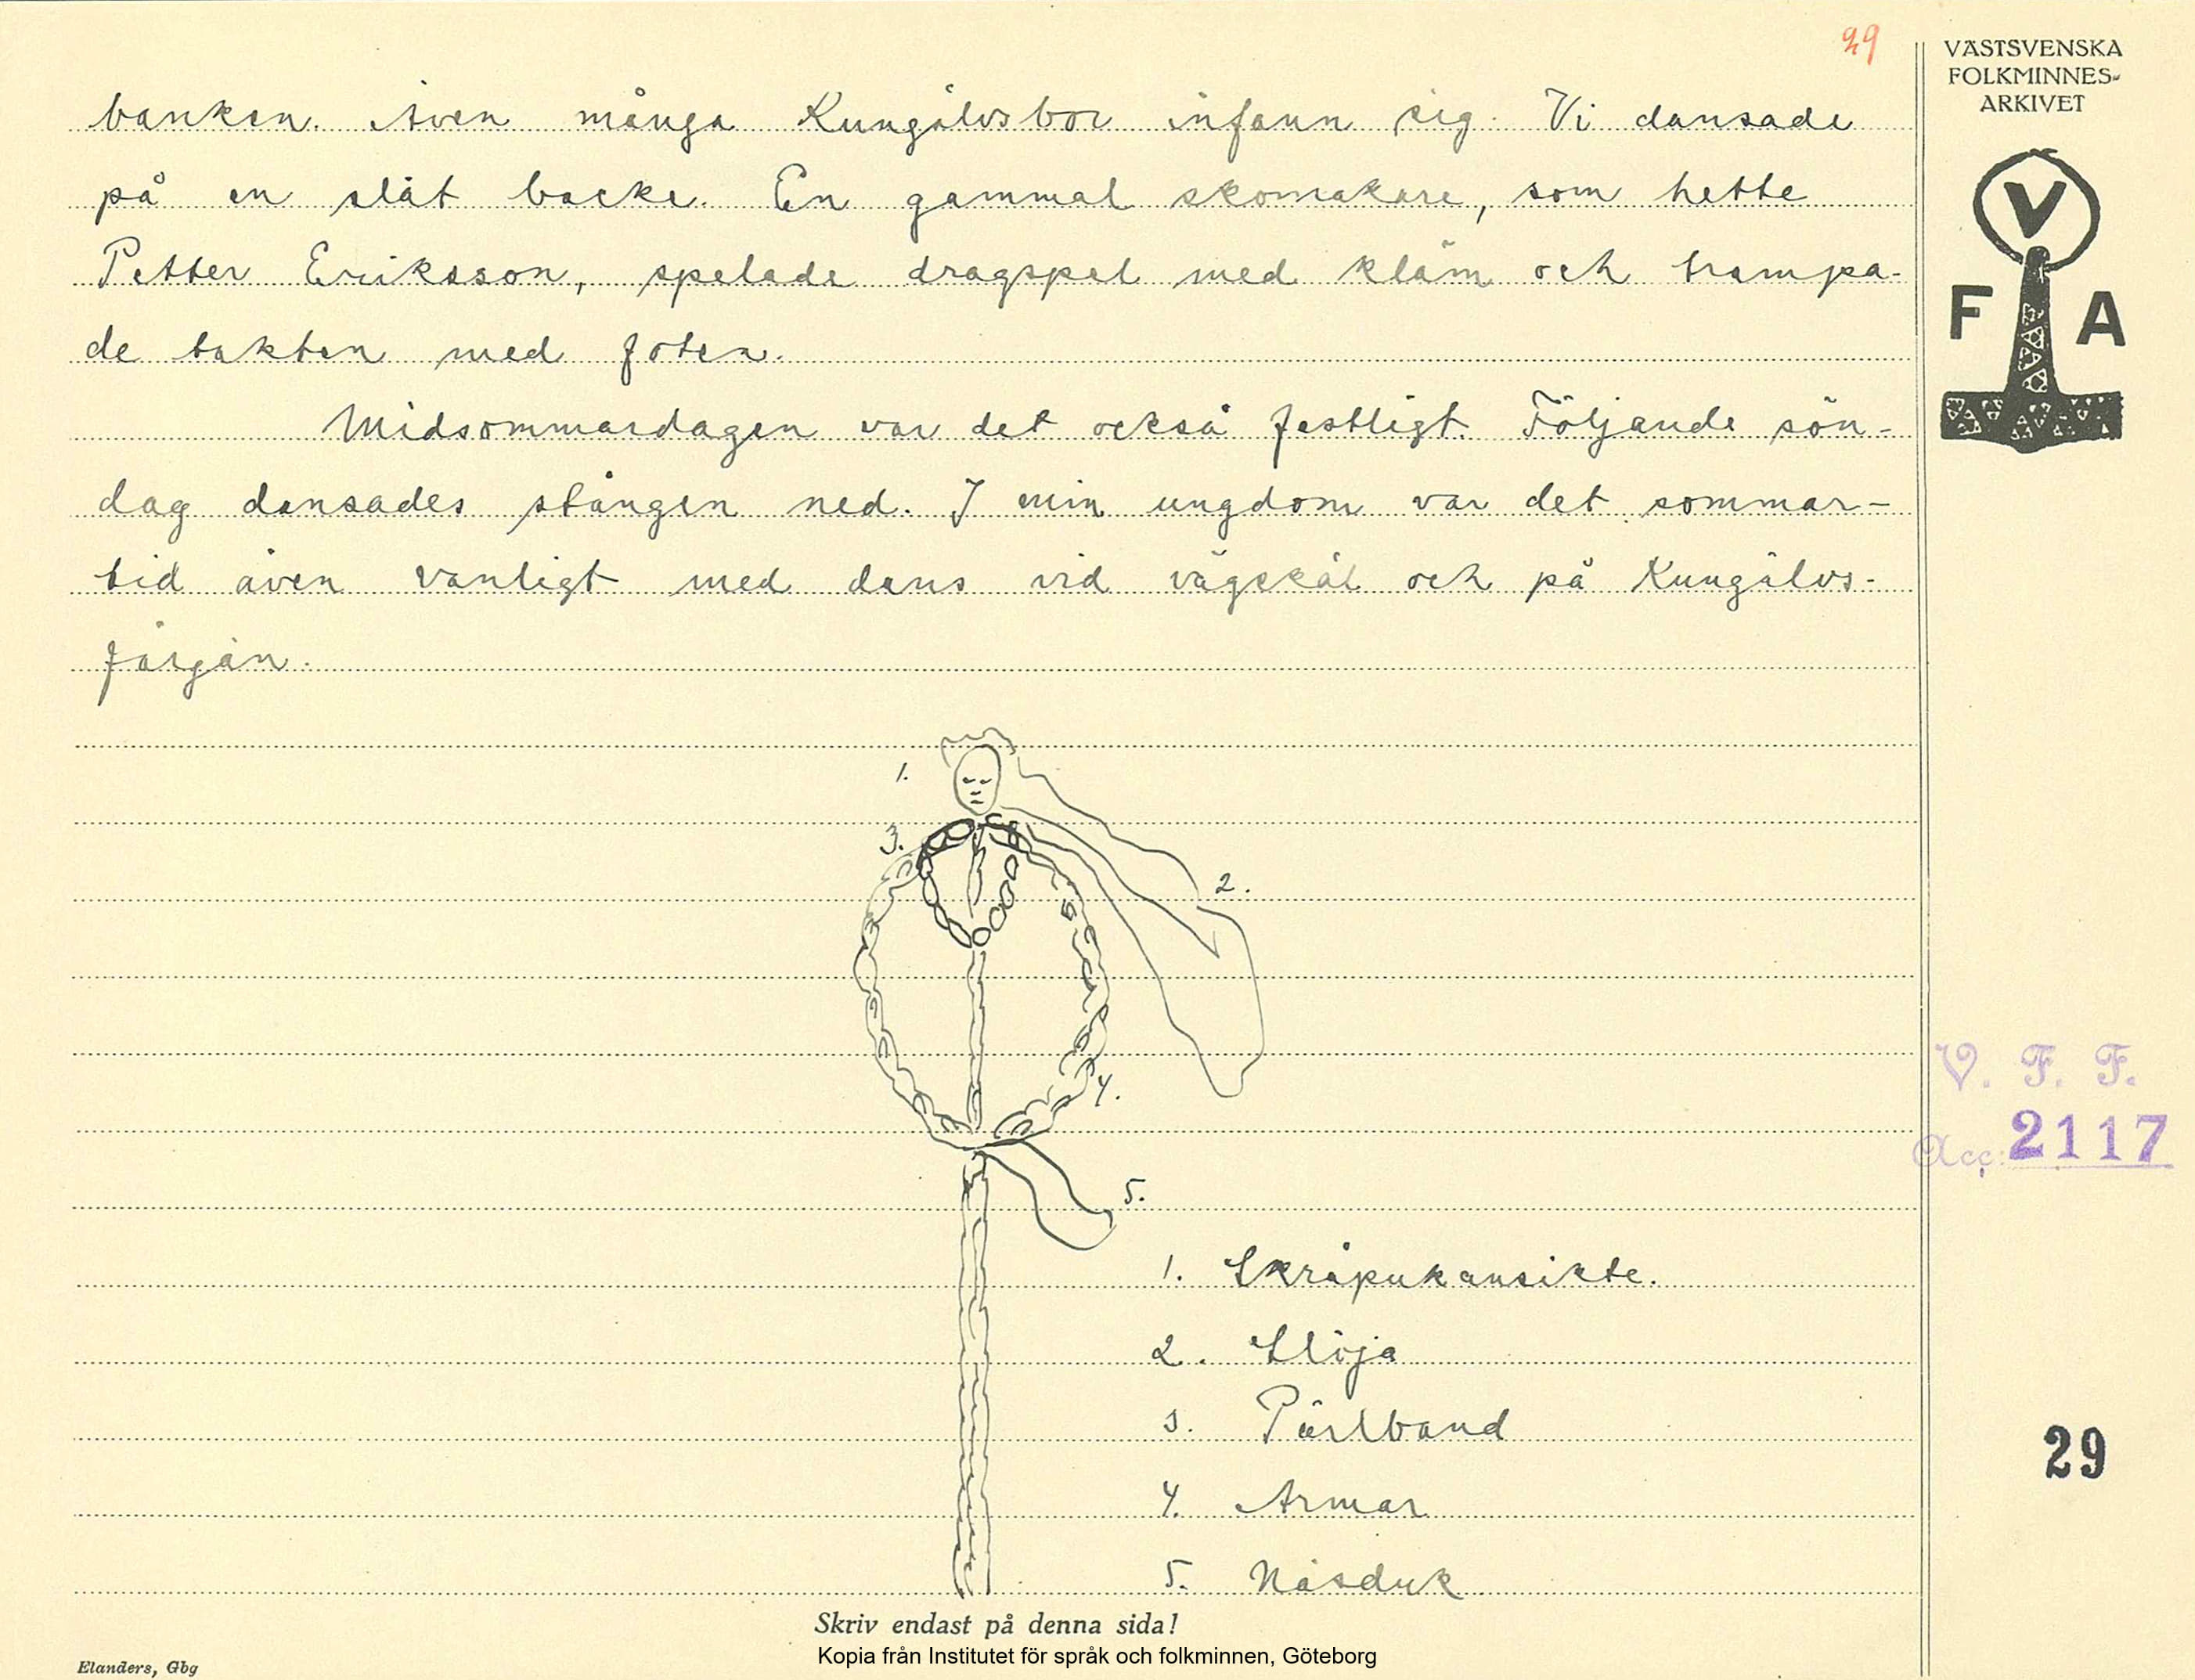 29
VÄSTSVENSKA
FOLKMINNES-
ARKIVET
V
F A
banken. Även många Kungälvsbor infann sig. Vi dansade
på en slät backe. En gammal skomakare, som hette
Petter Eriksson, spelade dragspel med kläm och trampa-
de takten med foten.
Midsommardagen var det också festligt. Följande sön-
dag dansades stången ned. I min ungdom var det sommar-
tid även vanligt med dans vid vägskäl och på Kungälvs-
färjan.
1.
3.
2.
4.
5.
V. F. F.
Acc. 2117
1. Skråpukansikte.
2. Slöja
3. Pärlband
4. Armar
5. Näsduk
29
Skriv endast på denna sida!
Kopia från Institutet för språk och folkminnen, Göteborg
Elanders, Gbg